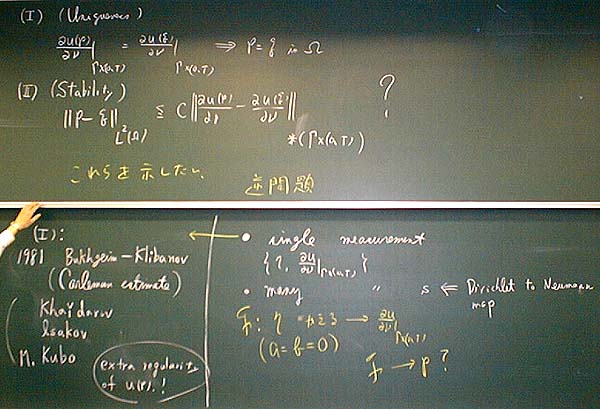 (I) (Uniqueness)
∂u(p)/∂ν |Γ×(0,T) = ∂u(q)/∂ν |Γ×(0,T) ⇒ p = q in Ω
(II) (Stability) ?
‖p − q‖L²(Ω) ≦ C ‖∂u(p)/∂ν − ∂u(q)/∂ν‖*(Γ×(0,T))
これらを示したい、 逆問題
(I):
1981 Bukhgeim–Klibanov
(Carleman estimate)
Khaĭdarov
Isakov
M. Kubo
extra regularity
of u(p).!
← • single measurement
{ ?, ∂u/∂ν |Γ×(0,T) }
• many 〃 s ⇐ Dirichlet to Neumann
map
: η → ∂u/∂ν |Γ×(0,T)
(a = b = 0)
→ p ?